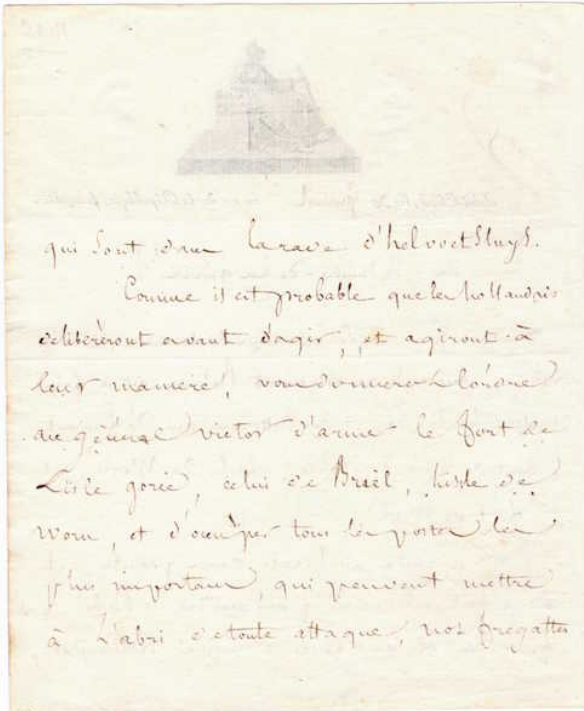 qui sont dans la rade d'helvoetSluys.
Comme il est probable que les hollandais
delibèreront avant d'agir, et agiront à
leur maniere, vous donnerez l'ordre
au général victor d'armer le fort de
L'isle gorée, celui de Briel, l'isle de
Worn, et d'occuper tous les postes les
plus importans, qui peuvent mettre
à L'abri de toute attaque, nos fregattes